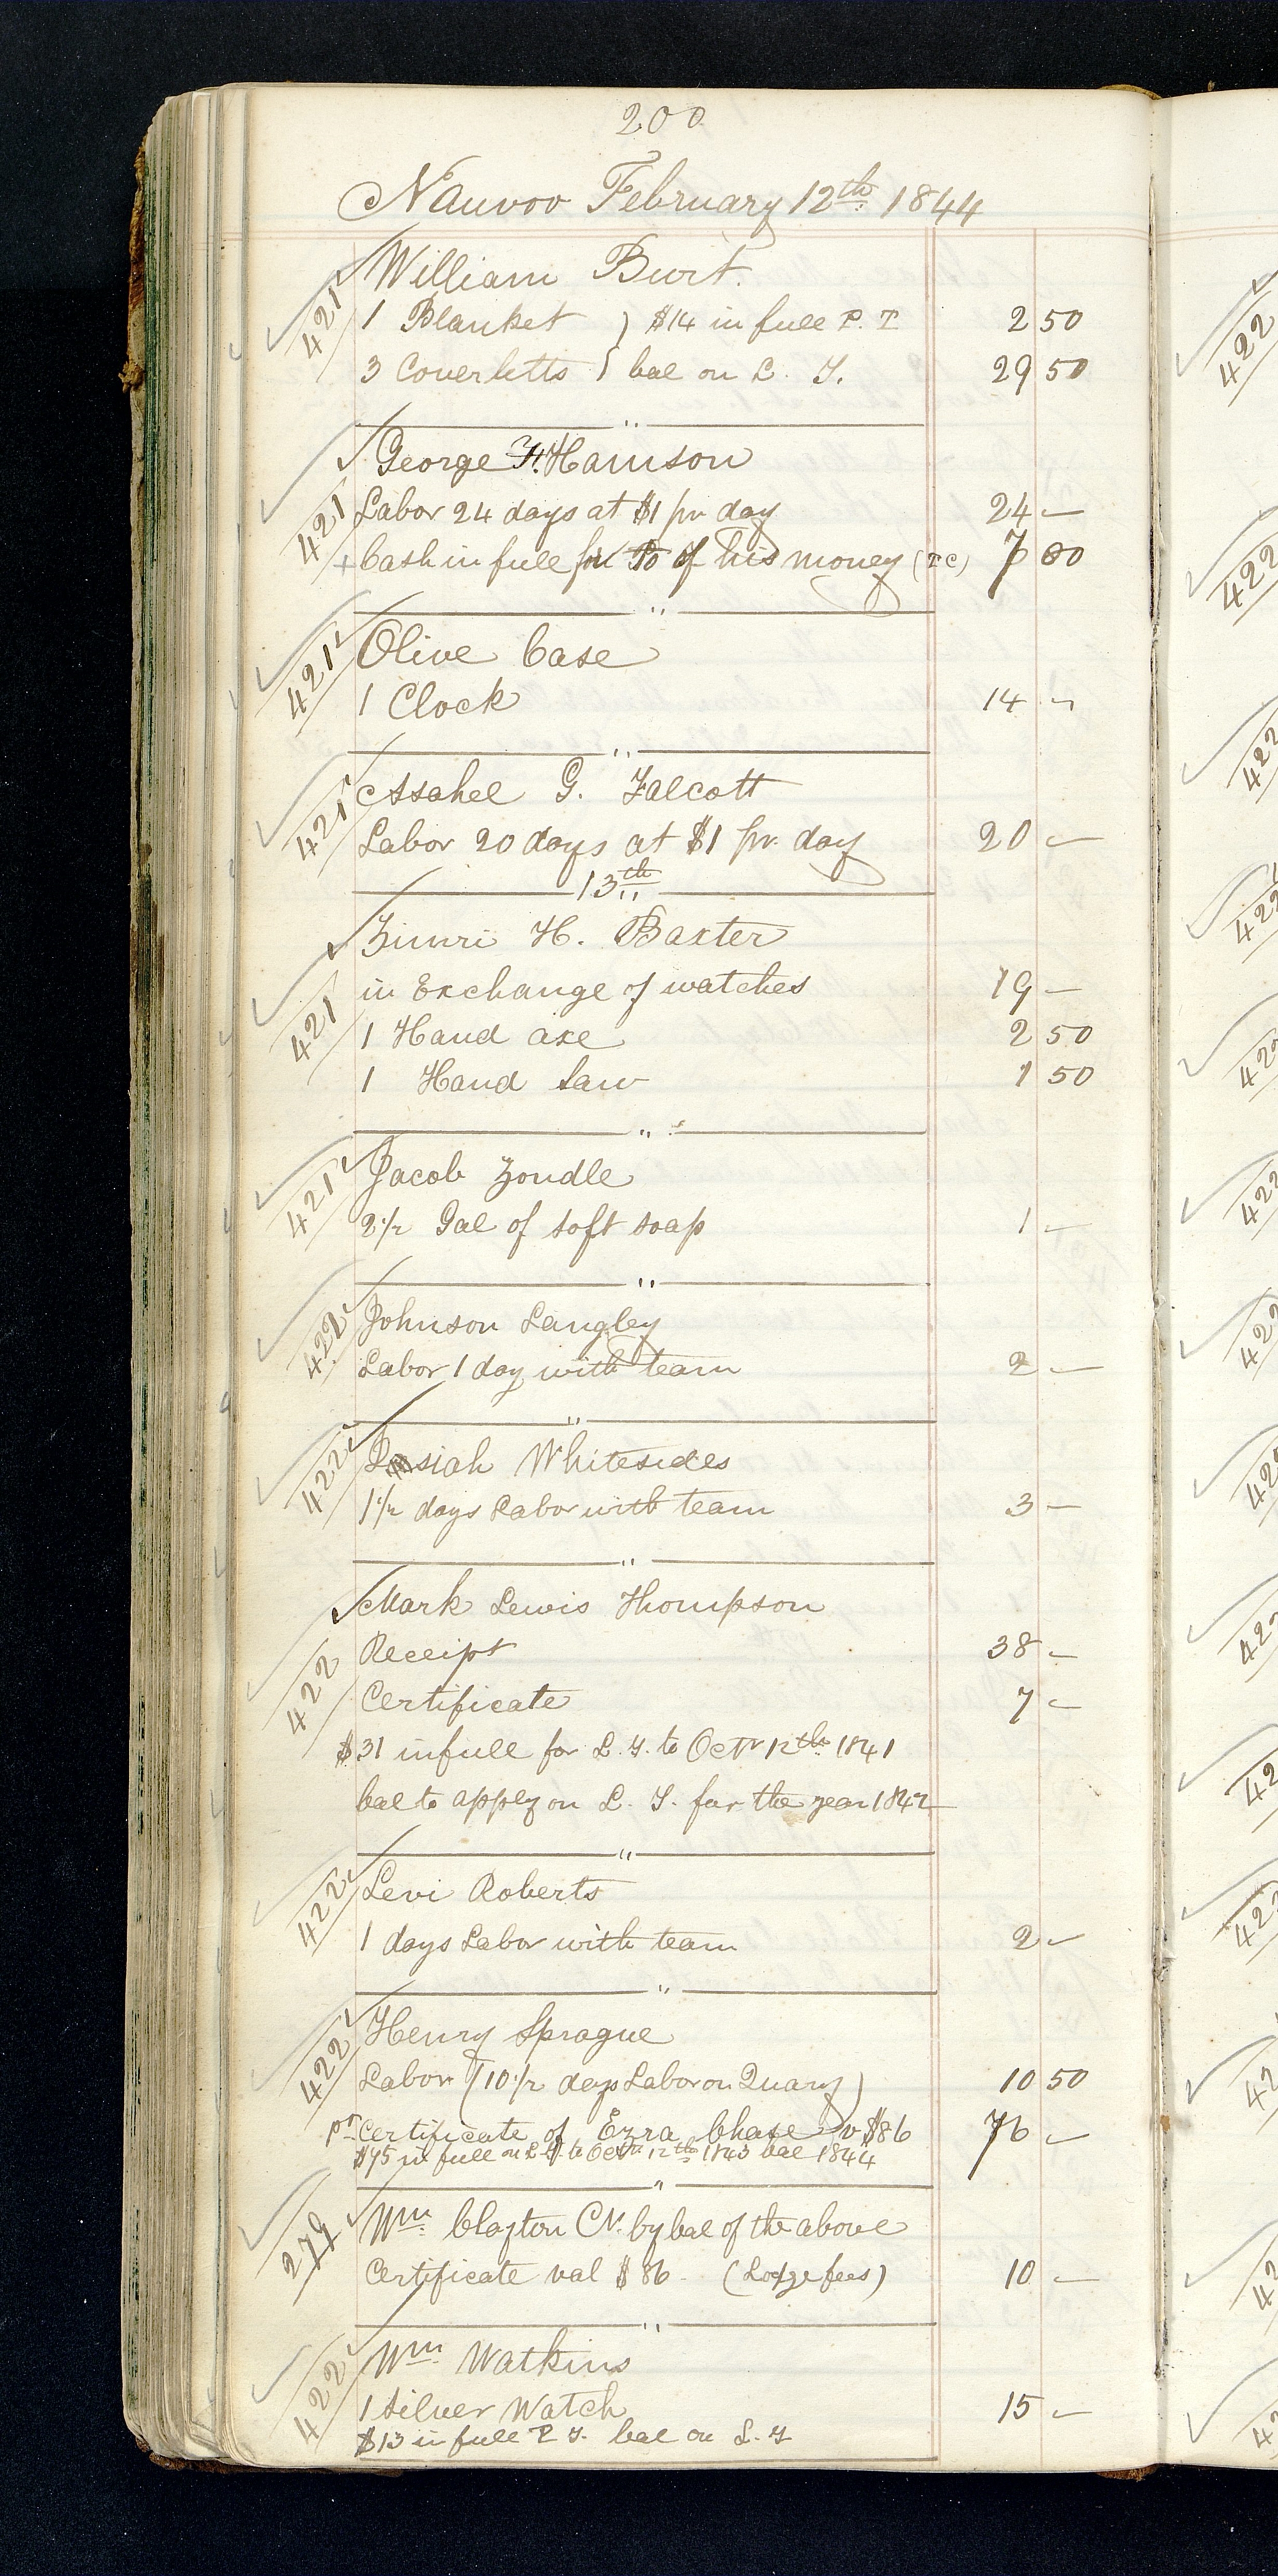 200
Nauvoo February 12th 1844
421 William Burt.
1 Blanket } $14 in full P. T 2 50
3 Coverletts } bal on L. T. 29 50
"
George Harrison
421 Labor 24 days at $1 pr day 24 —
+ Cash in full for of his money (T C) 7 00
"
421 Olive Case
1 Clock 14 —
"
421 Assahel G. Talcott
Labor 20 days at $1 pr day 20 —
13th
Zimri H. Baxter
421 in Exchange of watches 19 —
1 Hand axe 2 50
1 Hand saw 1 50
"
421 Jacob Zondle
2 1/2 Gal of soft soap 1 —
"
422 Johnson Langley
Labor 1 day with team 2 —
"
422 Josiah Whitesides
1 1/2 days Labor with team 3 —
"
Mark Lewis Thompson
422 Receipt 38 —
Certificate 7 —
$31 in full for L. T. to Octr 12th 1841
bal to apply on L. T. for the year 1842
"
422 Levi Roberts
1 days Labor with team 2 —
"
422 Henry Sprague
Labor (10 1/2 days Labor on Quary) 10 50
pr Certificate of Ezra Chase v $86 76 —
$75 in full on L T. to Octr 12th 1843 bal 1844
"
279 Wm Clayton Cr. by bal of the above
Certificate val $86 (Lodge fees) 10 —
"
422 Wm Watkins
1 Silver Watch 15 —
$13 in full P T. bal on L. T
422
422
422
422
422
422
422
422
422
42
422
42
42
42